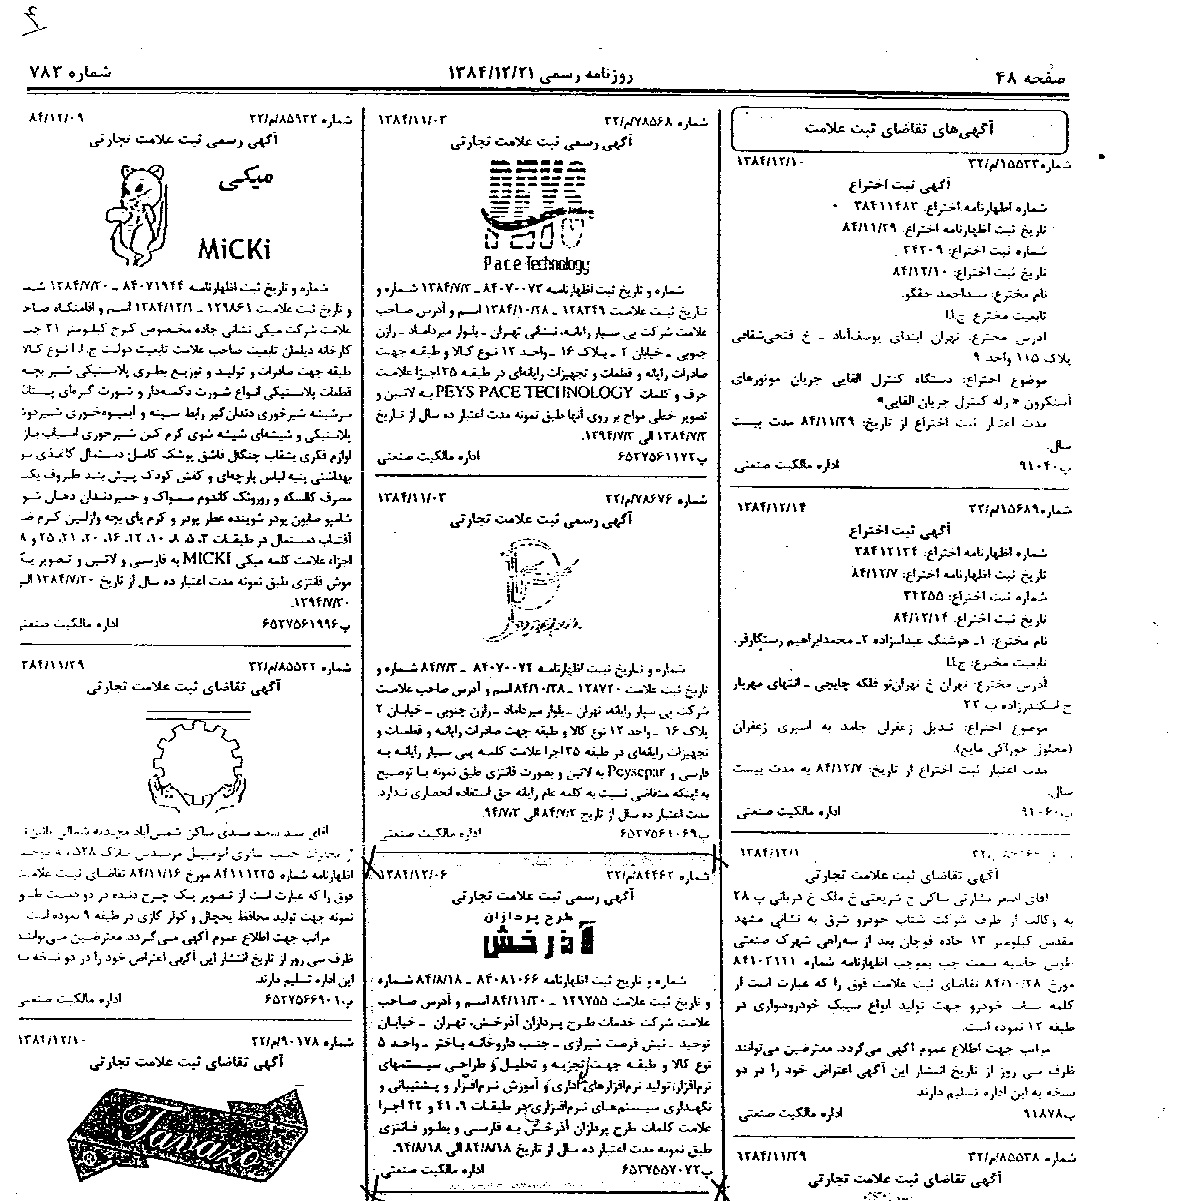 صفحه ۴۸
روزنامه رسمی ۱۳۸۴/۱۲/۲۱
شماره ۷۸۳
آگهی‌های تقاضای ثبت علامت
شماره ۱۵۵۲۳/م/۳۲ ۱۳۸۴/۱۲/۱۰
آگهی ثبت اختراع
شماره اظهارنامه اختراع: ۳۸۴۱۱۴۸۳
تاریخ ثبت اظهارنامه اختراع: ۸۴/۱۱/۲۹
شماره ثبت اختراع: ۳۴۲۰۹
تاریخ ثبت اختراع: ۸۴/۱۲/۱۰
نام مخترع: سیداحمد حقگو.
تابعیت مخترع ج.ا.ا
آدرس مخترع: تهران ابتدای یوسف‌آباد ـ خ فتحی‌شقاقی
پلاک ۱۱۵ واحد ۹
موضوع اختراع: دستگاه کنترل القایی جریان موتورهای
آسنکرون « رله کنترل جریان القایی»
مدت اعتبار ثبت اختراع از تاریخ: ۸۴/۱۱/۲۹ مدت بیست
سال.
پ۹۱۰۴۰ اداره مالکیت صنعتی
شماره ۱۵۶۸۹/م/۳۲ ۱۳۸۴/۱۲/۱۴
آگهی ثبت اختراع
شماره اظهارنامه اختراع: ۳۸۴۱۲۱۳۴
تاریخ ثبت اظهارنامه اختراع: ۸۴/۱۲/۷
شماره ثبت اختراع: ۳۴۲۵۵
تاریخ ثبت اختراع: ۸۴/۱۲/۱۴
نام مخترع: ۱ـ هوشنگ عبداله‌زاده ۲ـ محمدابراهیم رستگارفر.
تابعیت مخترع: ج.ا.ا
آدرس مخترع: تهران خ تهران‌نو فلکه چایچی ـ انتهای مهریار
خ اسکندرزاده پ ۲۳
موضوع اختراع: تبدیل زعفران جامد به اسپری زعفران
(محلول خوراکی مایع)
مدت اعتبار ثبت اختراع از تاریخ: ۸۴/۱۲/۷ به مدت بیست
سال.
پ۹۱۰۶۰ اداره مالکیت صنعتی
۱۳۸۴/۱۲/۱
آگهی تقاضای ثبت علامت تجارتی
آقای اصغر بشارتی ساکن خ شریعتی خ ملک خ قربانی پ ۲۸
به وکالت از طرف شرکت شتاب خودرو شرق به نشانی مشهد
مقدس کیلومتر ۱۳ جاده قوچان بعد از سه‌راهی شهرک صنعتی
طوس حاشیه سمت چپ بموجب اظهارنامه شماره ۸۴۱۰۲۱۱۱
مورخ ۸۴/۱۰/۲۸ تقاضای ثبت علامت فوق را که عبارت است از
کلمه خودرو جهت تولید انواع سبک خودروسواری در
طبقه ۱۲ نموده است.
مراتب جهت اطلاع عموم آگهی می‌گردد. معترضین می‌توانند
ظرف سی روز از تاریخ انتشار این آگهی اعتراض خود را در دو
نسخه به این اداره تسلیم دارند
پ۹۱۸۷۸ اداره مالکیت صنعتی
شماره ۸۵۵۳۸/م/۳۲ ۱۳۸۴/۱۱/۲۹
آگهی تقاضای ثبت علامت تجارتی
شماره ۷۸۵۶۸/م/۳۲ ۱۳۸۴/۱۱/۰۳
آگهی رسمی ثبت علامت تجارتی
Pace Technology
شماره و تاریخ ثبت اظهارنامه ۸۴۰۷۰۰۷۳ ـ ۱۳۸۴/۷/۳ شماره و
تاریخ ثبت علامت ۱۲۸۳۴۹ ـ ۱۳۸۴/۱۰/۲۸ اسم و آدرس صاحب
علامت شرکت پی سیار رایانه، نشانی تهران ـ بلوار میرداماد ـ رازن
جنوبی ـ خیابان ۲ ـ پلاک ۱۶ ـ واحد ۱۲ نوع کالا و طبقه جهت
صادرات رایانه و قطعات و تجهیزات رایانه‌ای در طبقه ۳۵ اجزا علامت
حرف و کلمات PEYS PACE TECHNOLOGY به لاتین و
تصویر خطی مواج بر روی آنها طبق نمونه مدت اعتبار ده سال از تاریخ
۱۳۸۴/۷/۳ الی ۱۳۹۴/۷/۳.
پ۶۵۲۷۵۶۱۱۷۲ اداره مالکیت صنعتی
شماره ۷۸۶۷۶/م/۳۲ ۱۳۸۴/۱۱/۰۳
آگهی رسمی ثبت علامت تجارتی
شماره و تاریخ ثبت اظهارنامه ۸۴۰۷۰۰۷۴ ـ ۸۴/۷/۳ شماره و
تاریخ ثبت علامت ۱۲۸۷۲۰ ـ ۸۴/۱۰/۲۸ اسم و آدرس صاحب علامت
شرکت پی سیار رایانه، تهران ـ بلوار میرداماد ـ رازن جنوبی ـ خیابان ۲
پلاک ۱۶ ـ واحد ۱۲ نوع کالا و طبقه جهت صادرات رایانه و قطعات و
تجهیزات رایانه‌ای در طبقه ۳۵ اجزا علامت کلمه پی سیار رایانه به
فارسی و Peysepar به لاتین و بصورت فانتزی طبق نمونه با توضیح
به اینکه متقاضی نسبت به کلمه عام رایانه حق استفاده انحصاری ندارد.
مدت اعتبار ده سال از تاریخ ۸۴/۷/۳ الی ۹۴/۷/۳.
پ۶۵۲۷۵۶۱۰۶۹ اداره مالکیت صنعتی
شماره ۸۴۴۶۲/م/۳۲ ۱۳۸۴/۱۲/۰۶
آگهی رسمی ثبت علامت تجارتی
طرح پردازان
آذرخش
شماره و تاریخ ثبت اظهارنامه ۸۴۰۸۱۰۶۶ ـ ۸۴/۸/۱۸ شماره
و تاریخ ثبت علامت ۱۲۹۷۵۵ ـ ۸۴/۱۱/۳۰ اسم و آدرس صاحب
علامت شرکت خدمات طرح پردازان آذرخش، تهران ـ خیابان
توحید ـ نبش فرصت شیرازی ـ جنب داروخانه باختر ـ واحد ۵
نوع کالا و طبقه جهت تجزیه و تحلیل و طراحی سیستمهای
نرم‌افزار، تولید نرم‌افزارهای اداری و آموزش نرم‌افزار و پشتیبانی و
نگهداری سیستم‌های نرم‌افزاری در طبقات ۹، ۴۱ و ۴۲ اجزا
علامت کلمات طرح پردازان آذرخش به فارسی و بطور فانتزی
طبق نمونه مدت اعتبار ده سال از تاریخ ۸۴/۸/۱۸ الی ۹۴/۸/۱۸.
پ۶۵۲۷۵۵۷۰۷۲ اداره مالکیت صنعتی
شماره ۸۵۹۲۲/م/۳۲ ۸۴/۱۲/۰۹
آگهی رسمی ثبت علامت تجارتی
میکی
MiCKi
شماره و تاریخ ثبت اظهارنامه ۸۴۰۷۱۹۴۴ ـ ۱۳۸۴/۷/۲۰
و تاریخ ثبت علامت ۱۲۹۸۶۱ ـ ۱۳۸۴/۱۲/۱ اسم و اقامتگاه
علامت شرکت میکی نشانی جاده مخصوص کرج کیلومتر ۲۱
کارخانه دیلمان تابعیت صاحب علامت تابعیت دولت ج.ا.ا نوع کالا
طبقه جهت صادرات و تولید و توزیع بطری پلاستیکی شیر بچه
قطعات پلاستیکی انواع شورت دکمه‌دار و شورت گره‌ای
سرشیشه شیرخوری دندان‌گیر رابط سینه و آبمیوه‌خوری
پلاستیکی و شیشه‌ای شیشه شوی گرم کن شیرخوری اسباب بازی
لوازم فکری بشقاب چنگال قاشق پوشک کامل دستمال کاغذی
بهداشتی پنبه لباس پارچه‌ای و کفش کودک پیش بند ظروف یک
مصرف کالسکه و روروئک کاندوم مسواک و خمیردندان دهان
شامپو صابون پودر شوینده عطر پودر و کرم پای بچه وازلین کرم
آفتاب دستمال در طبقات ۳، ۵، ۸، ۱۰، ۱۲، ۱۶، ۲۰، ۲۱، ۲۵ و
اجزاء علامت کلمه میکی MICKI به فارسی و لاتین و تصویر یک
موش فانتزی طبق نمونه مدت اعتبار ده سال از تاریخ ۱۳۸۴/۷/۲۰ الی
۱۳۹۴/۷/۲۰.
پ۶۵۲۷۵۶۱۹۹۶ اداره مالکیت صنعتی
شماره ۸۵۵۲۲/م/۳۲ ۳۸۴/۱۱/۲۹
آگهی تقاضای ثبت علامت تجارتی
آقای سید سعید سیدی ساکن شمس‌آباد مجیدیه شمالی
اظهارنامه شماره ۸۴۱۱۱۲۲۵ مورخ ۸۴/۱۱/۱۶ تقاضای ثبت علامت
فوق را که عبارت است از تصویر یک چرخ دنده در دو دست
نمونه جهت تولید محافظ یخچال و کولر گازی در طبقه ۹ نموده است.
مراتب جهت اطلاع عموم آگهی می‌گردد. معترضین می‌توانند
ظرف سی روز از تاریخ انتشار این آگهی اعتراض خود را در دو نسخه
این اداره تسلیم دارند.
پ۶۵۲۷۵۶۶۹۰۱ اداره مالکیت صنعتی
شماره ۹۰۱۷۸/م/۳۲ ۱۳۸۴/۱۲/۱۰
آگهی تقاضای ثبت علامت تجارتی
Tanazo